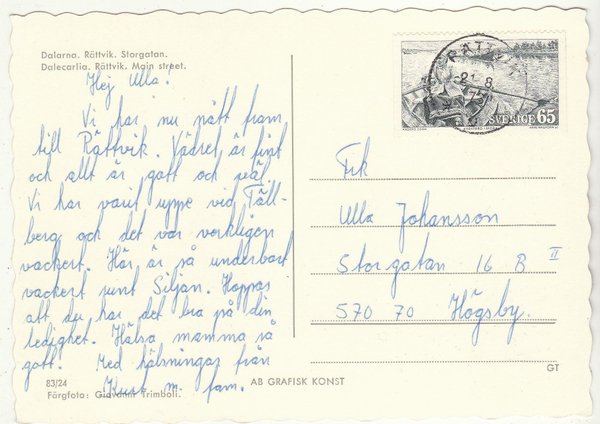 Dalarna. Rättvik. Storgatan.
Dalecarlia. Rättvik. Main street.
Hej Ulla!
Vi har nu nått fram
till Rättvik. Vädret är fint
och allt är gott och väl.
Vi har varit uppe vid Täll-
berg och det var verkligen
vackert. Här är så underbart
vackert runt Siljan. Hoppas
att du har det bra på din
ledighet. Hälsa mamma så
gott. Med hälsningar från
Kurt m. fam.
83/24
Färgfoto: Giovanni Trimboli.
AB GRAFISK KONST
RÄTTVIK
21 8
SVERIGE 65
Frk
Ulla Johansson
Storgatan 16 B II
570 70 Högsby.
GT